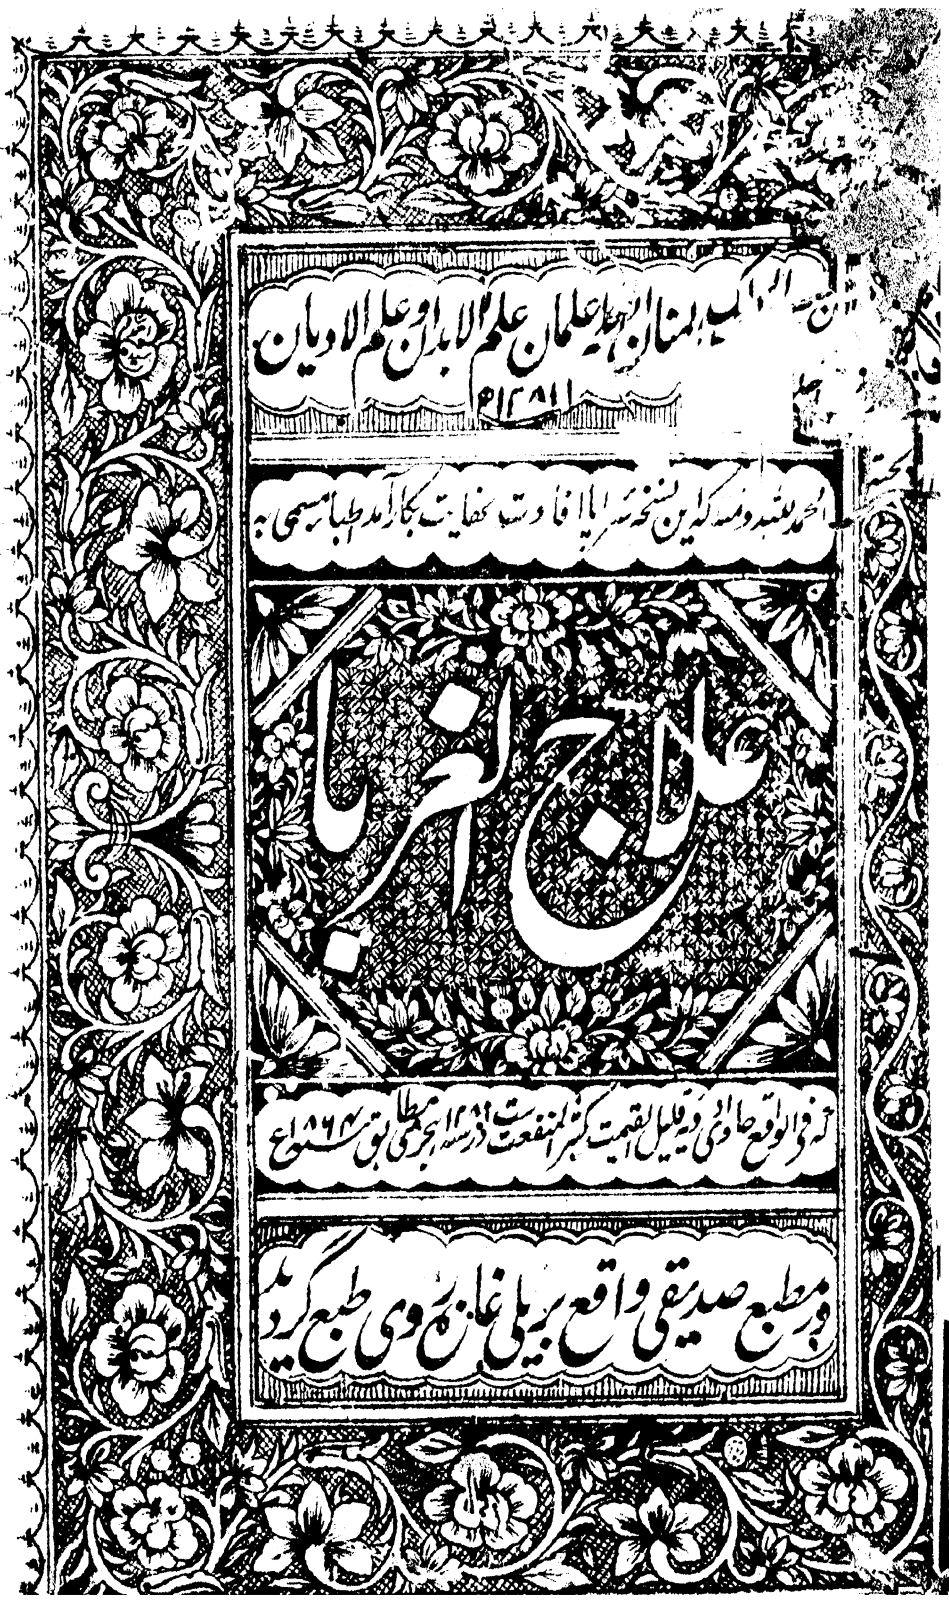 المنان العلم علمان علم الابدان وعلم الادیان
۱۲۸۱
الحمد لله والمنه که این نسخه سراپا افادت کفایت بکار آمد اطبا مسمی به
علاج الغربا
که فی الواقع حاوی قلیل القیمت کثیر المنفعت در سنه ۱۲۸۱ هجری مطابق سنه ۱۸۶۴ ع
در مطبع صدیقی واقع بریلی غازه روی طبع گردید